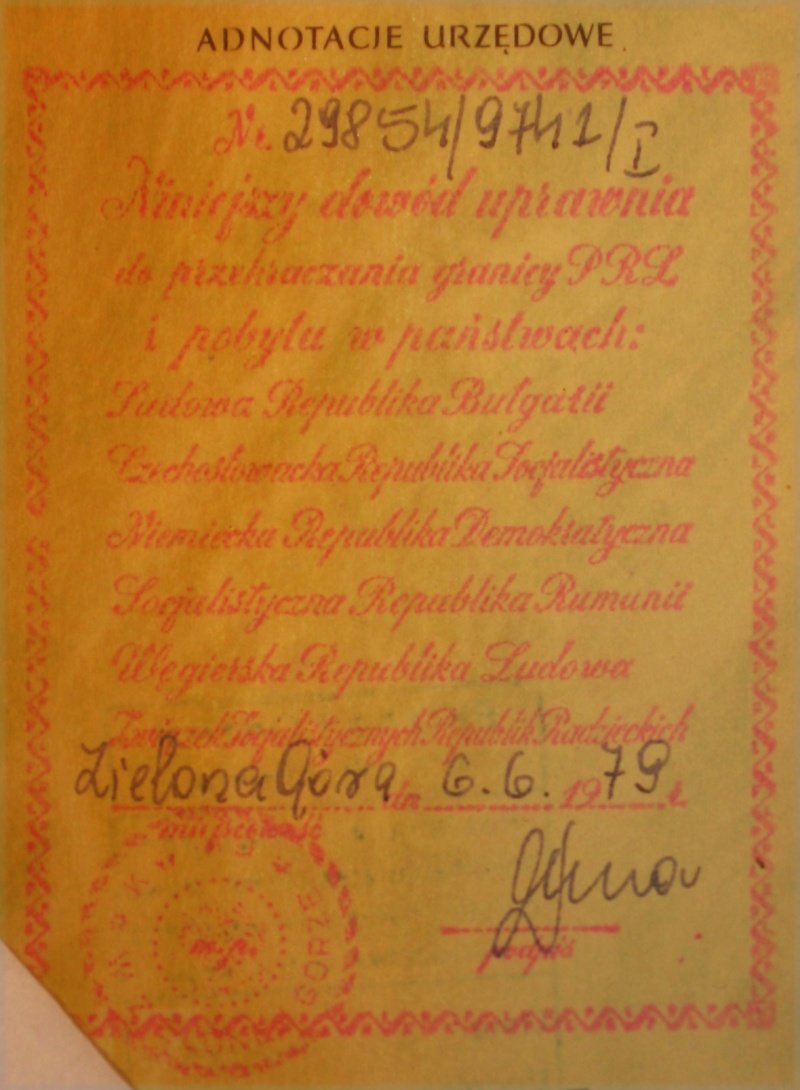 ADNOTACJE URZĘDOWE
Nr. 29854/9741/I
Niniejszy dowód uprawnia
do przekraczania granicy PRL
i pobytu w państwach:
Ludowa Republika Bułgarii
Czechosłowacka Republika Socjalistyczna
Niemiecka Republika Demokratyczna
Socjalistyczna Republika Rumunii
Węgierska Republika Ludowa
Związek Socjalistycznych Republik Radzieckich
Zielona Góra dn. 6.6. 1979 r.
miejscowość
m.p.
GÓRZE
podpis